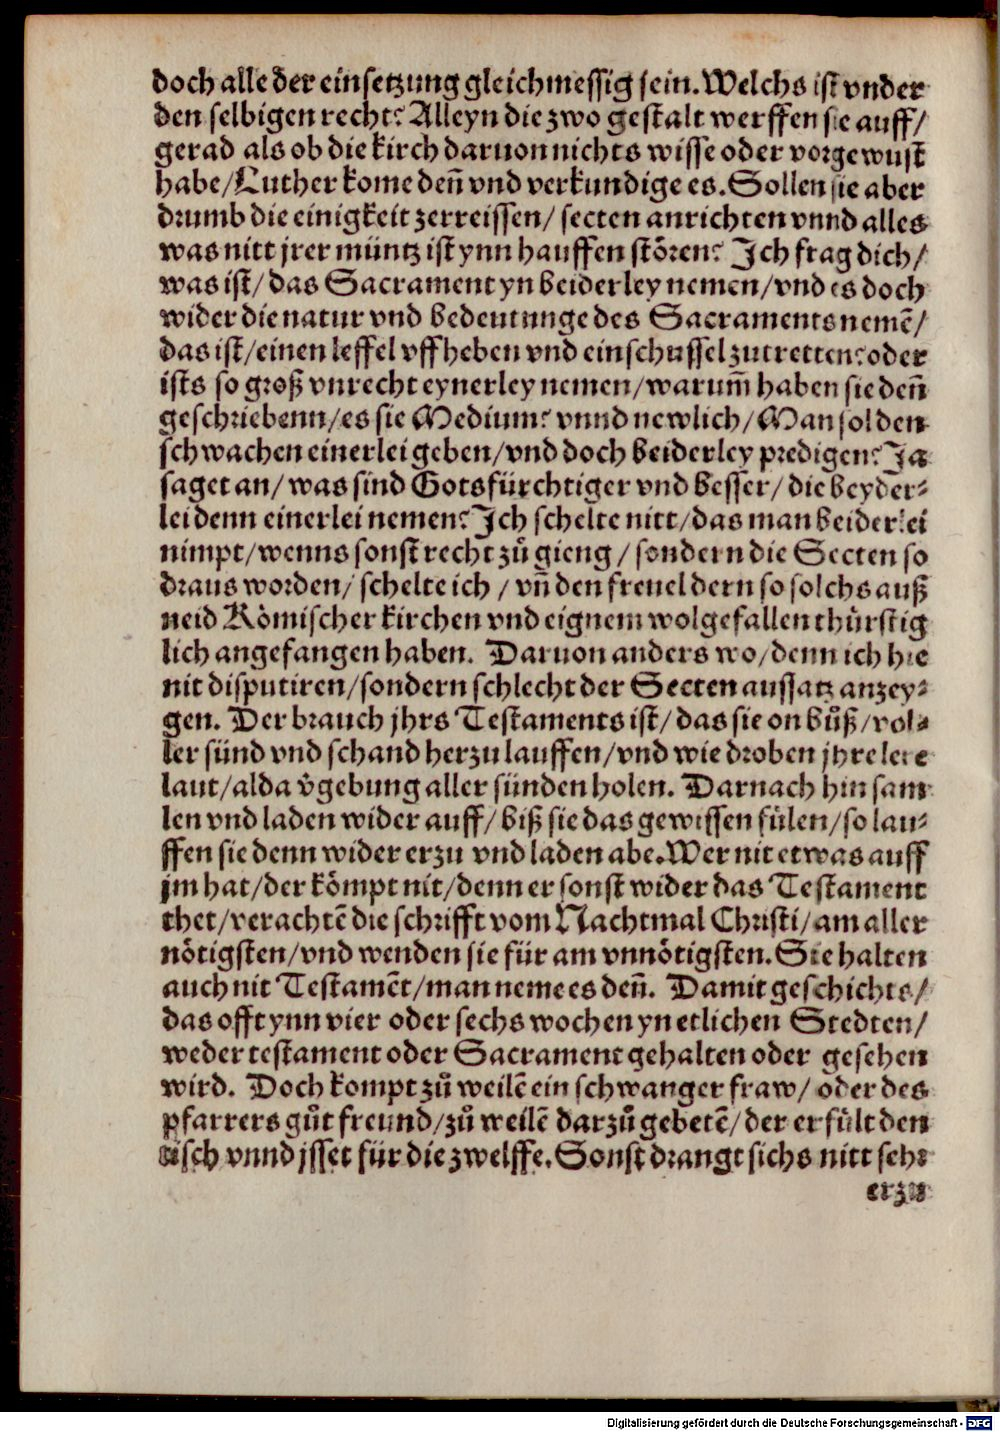 doch alle der einsetzung gleichmessig sein. Welchs ist vnder
den selbigen recht? Alleyn die zwo gestalt werffen sie auff/
gerad als ob die kirch daruon nichts wisse oder vor gewust
habe/ Luther kome deñ vnd verkundige es. Sollen sie aber
drumb die einigkeit zerreissen/ secten anrichten vnnd alles
was nitt jrer müntz ist ynn hauffen stören? Ich frag dich/
was ist/ das Sacrament yn beiderley nemen/ vnd es doch
wider die natur vnd bedeutunge des Sacraments nemē/
das ist/ einen leffel vffheben vnd ein schussel zutretten? oder
ists so groß vnrecht eynerley nemen/ warum̄ haben sie deñ
geschriebenn/ es sie Medium? vnnd newlich/ Man sol den
schwachen einerlei geben/ vnd doch beiderley predigen? Ja
saget an/ was sind Gotsfürchtiger vnd besser/ die beyder-
lei denn einerlei nemen? Ich schelte nitt/ das man beiderlei
nimpt/ wenns sonst recht zů gieng/ sondern die Secten so
draus worden/ schelte ich/ vñ den freuel dern so solchs auß
neid Römischer kirchen vnd eignem wolgefallen thürstig
lich angefangen haben. Daruon anders wo/ denn ich hie
nit disputiren/ sondern schlecht der Secten aussatz anzey-
gen. Der brauch jhrs Testaments ist/ das sie on bůß/ vol-
ler sünd vnd schand herzu lauffen/ vnd wie droben jhre lere
laut/ alda v̄gebung aller sünden holen. Darnach hin sam
len vnd laden wider auff/ biß sie das gewissen fülen/ so lau-
ffen sie denn wider erzu vnd laden abe. Wer nit etwas auff
jm hat/ der kömpt nit/ denn er sonst wider das Testament
thet/ verachtē die schrifft vom Nachtmal Christi/ am aller
nötigsten/ vnd wenden sie für am vnnötigsten. Sie halten
auch nit Testamēt/ man neme es deñ. Damit geschichts/
das offt ynn vier oder sechs wochen yn etlichen Stedten/
weder testament oder Sacrament gehalten oder gesehen
wird. Doch kompt zů weilē ein schwanger fraw/ oder des
pfarrers gůt freund/ zů weilē darzů gebetē/ der erfült den
tisch vnnd jsset für die zwelffe. Sonst drangt sichs nitt sehr
erzu
Digitalisierung gefördert durch die Deutsche Forschungsgemeinschaft - DFG